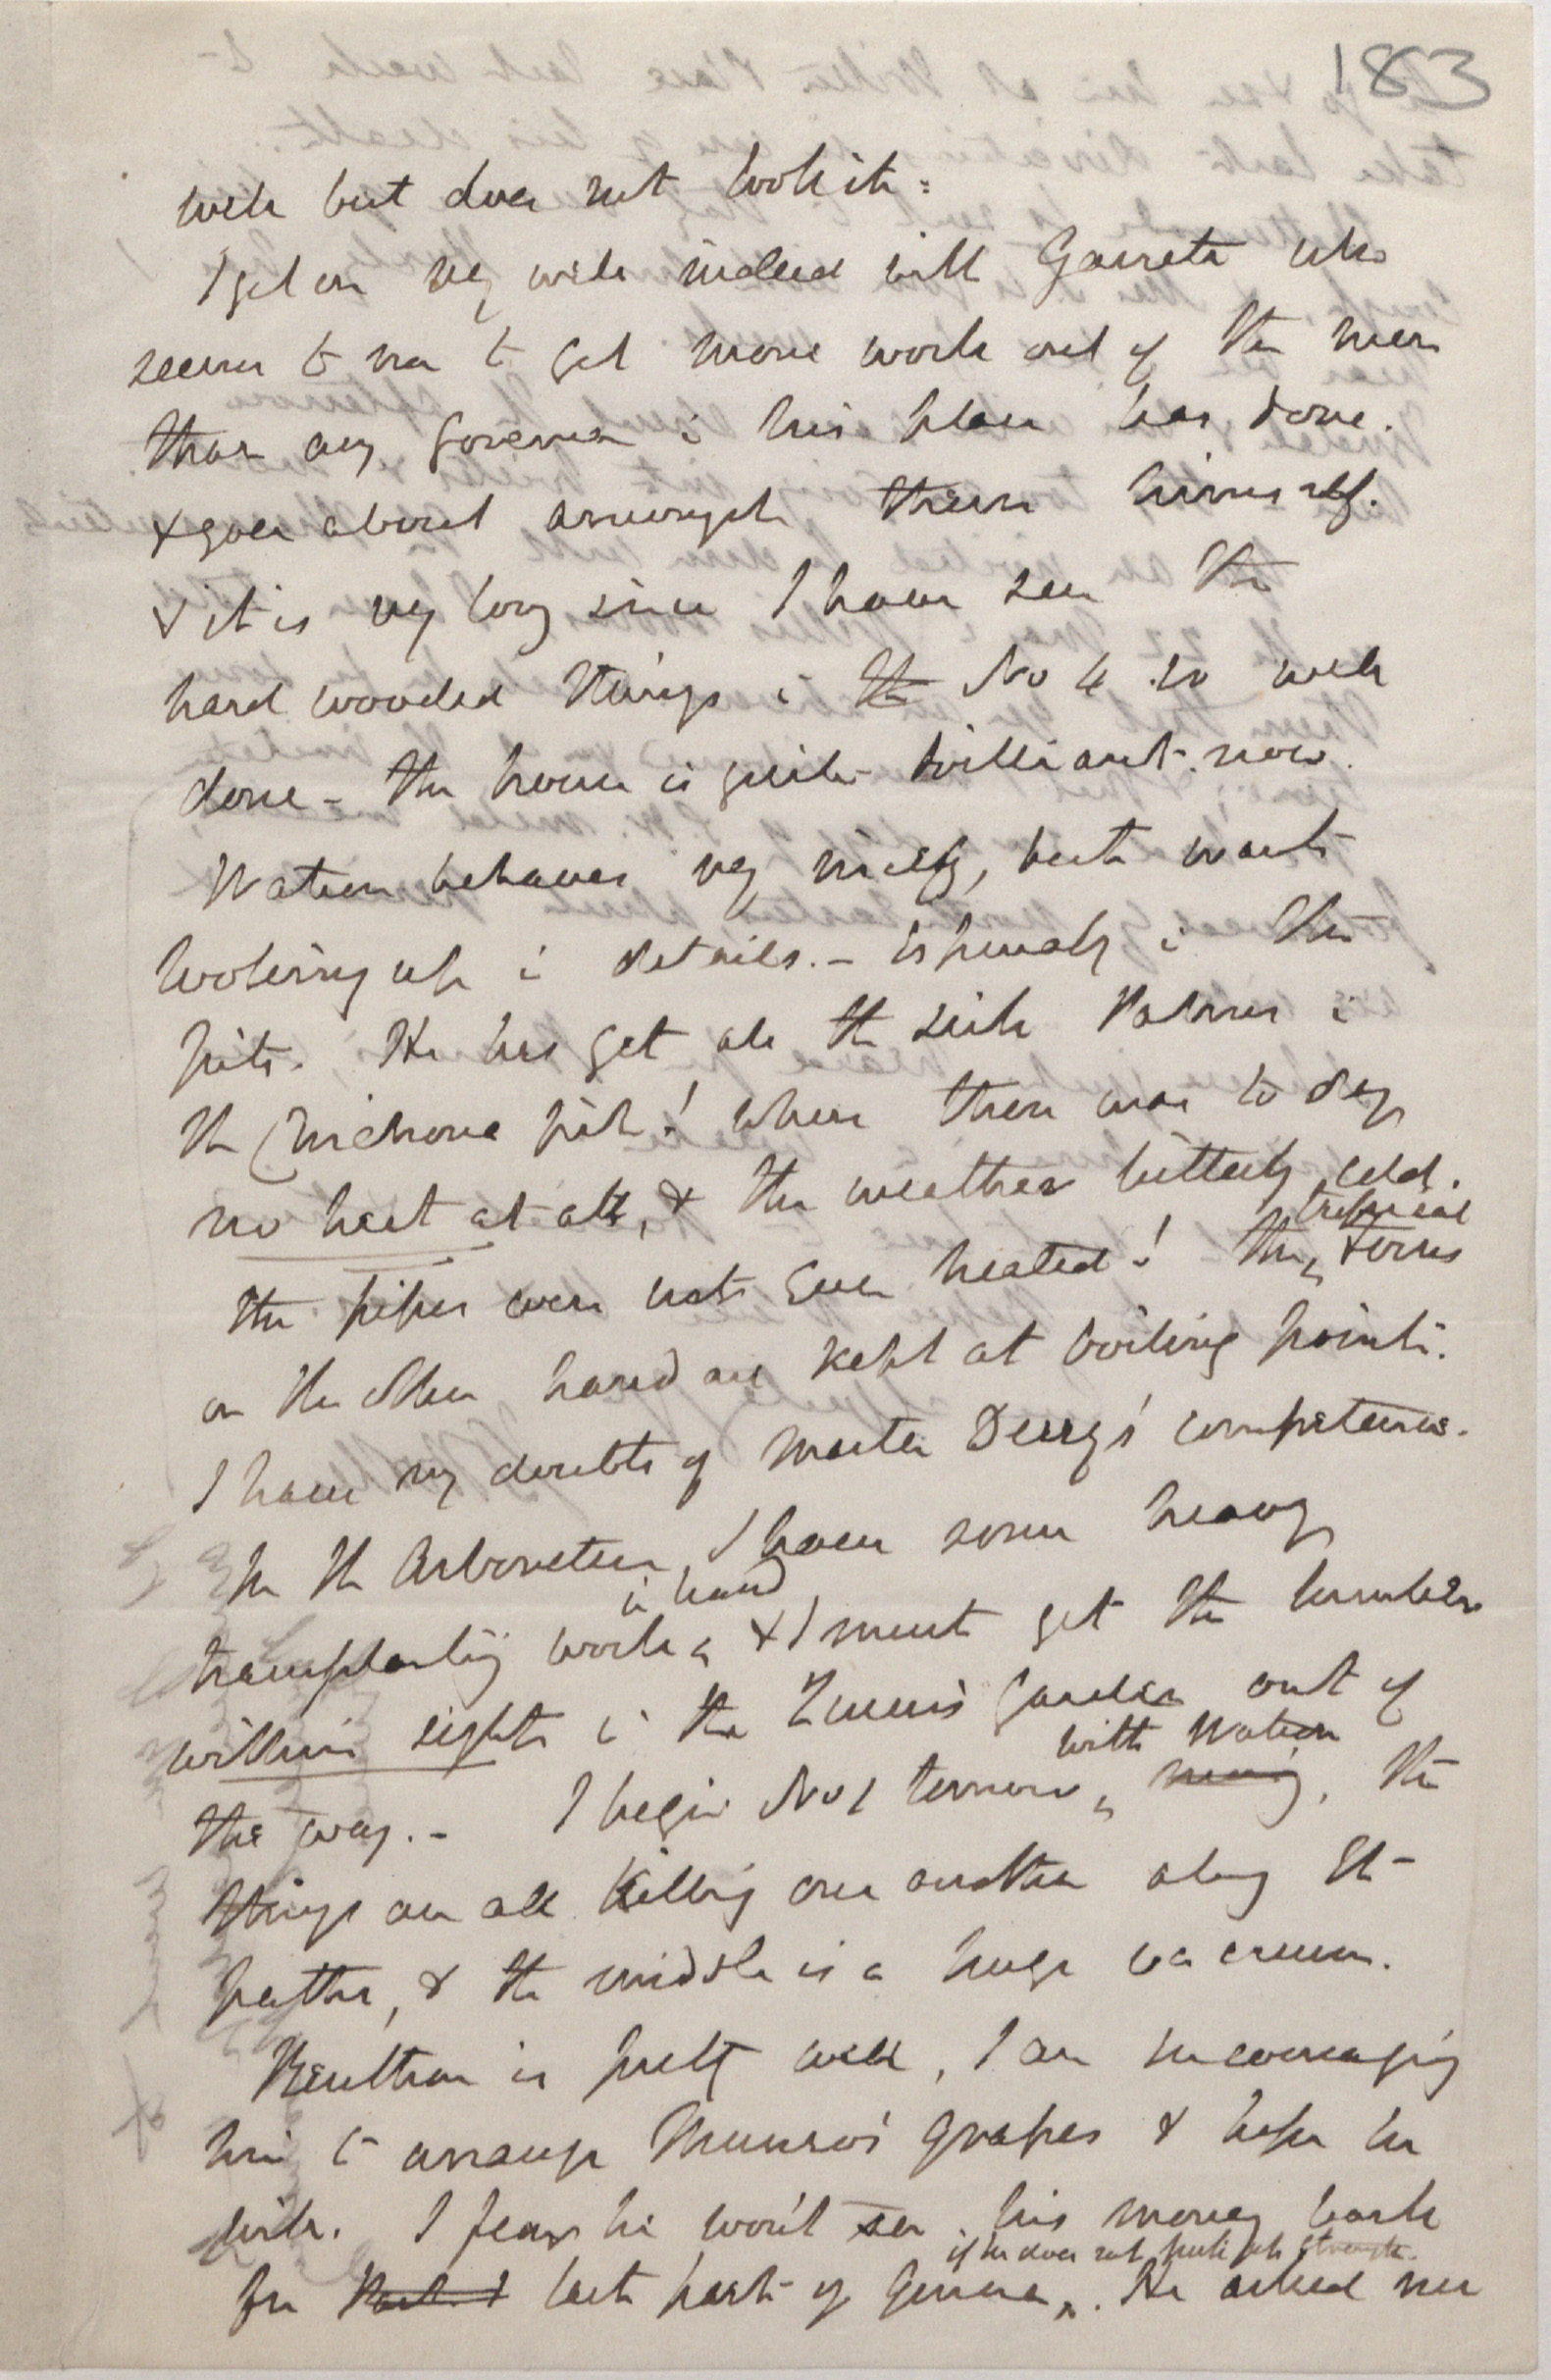 183
well but does not look it.
I get on very well indeed with Garrett who
seems to me to get more work out of the men
than any foreman in his place has done.
& goes about amongst them himself.
& it is very long since I have seen the
hard wooded things in the No 4 so well
done – the house is quite brilliant now.
Watson behaves very nicely, but wants
looking up in details. – especially in the
pits. He has got all the sick Palms in
the Cinchona pit! where there was to day
no heat at all, & the weather bitterly cold.
the pipes were not even heated! The tropical Ferns
on the other hand are kept at boiling point.
I have my doubts of Master Dewy's competence.
In the Arboretum I have some heavy
transplanting work in hand & I must get the
within sight in the garden out of
the way. – I begin No 1 tomorrow with Watson, the
things are all killing one another along the
paths, & the middle is a huge vacuum.
Bentham is pretty well, I am encouraging
him to arrange Munro's grapes & hope he
will. I fear he won't see his money back
for last part of Genera if he does not . He asked me